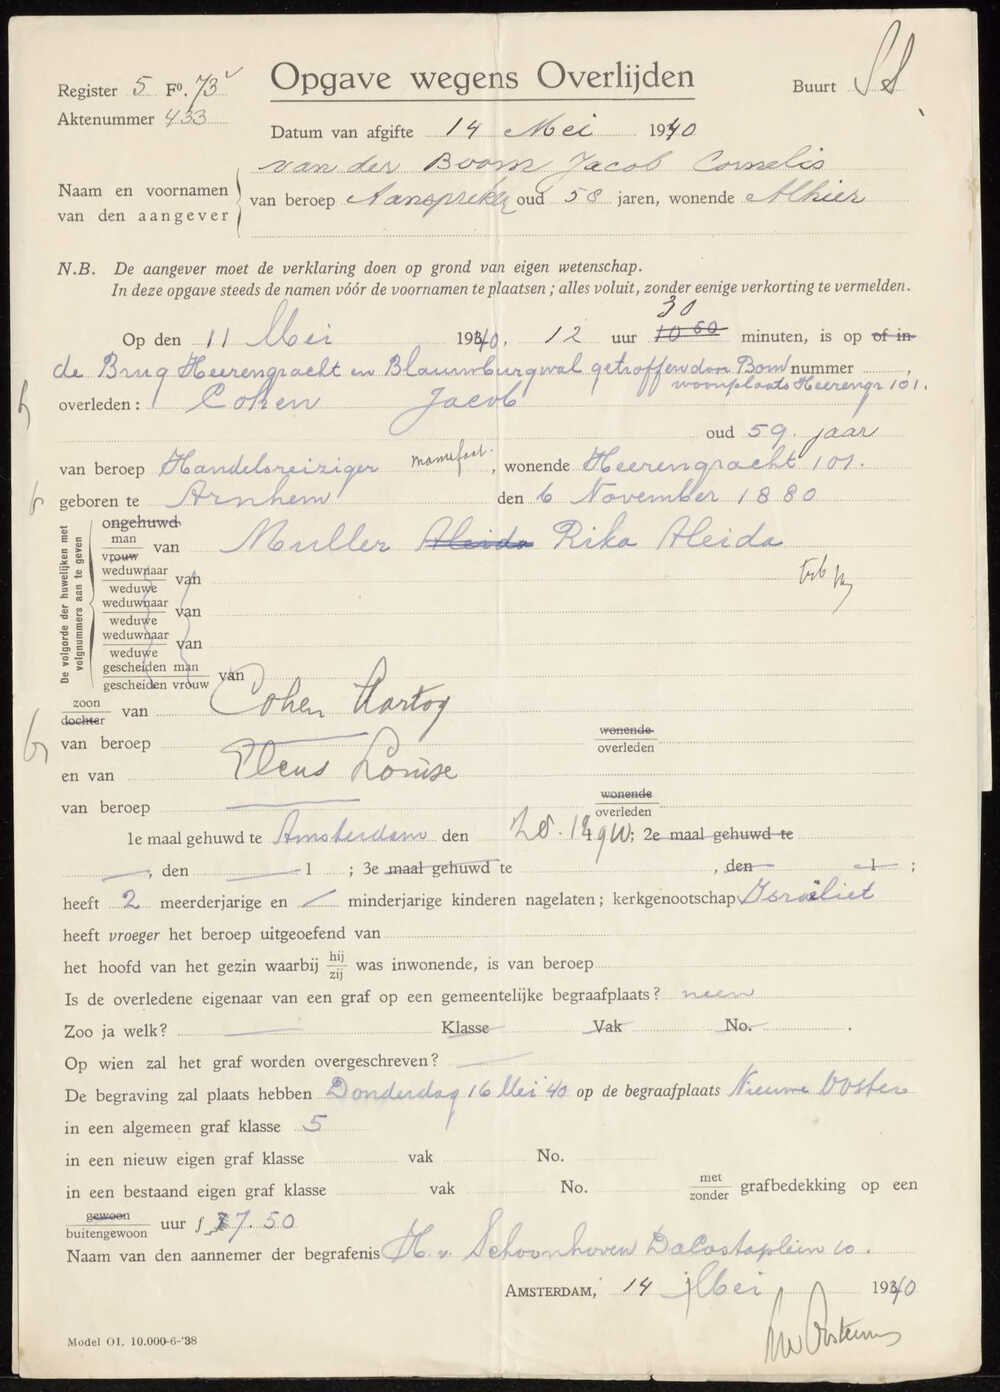 Opgave wegens Overlijden
Register 5 Fo. 73
Buurt SS
Aktenummer 433
Datum van afgifte 14 Mei 1940
Naam en voornamen van den aangever
van der Boom Jacob Cornelis
van beroep Aanspreker oud 58 jaren, wonende Alhier
N.B. De aangever moet de verklaring doen op grond van eigen wetenschap.
In deze opgave steeds de namen vóór de voornamen te plaatsen; alles voluit, zonder eenige verkorting te vermelden.
30
Op den 11 Mei 1940, 12 uur 10 60 minuten, is op of in
de Brug Heerengracht en Blauwburgwal getroffen door Bom nummer
woonplaats Heerengr 101.
overleden: Cohen Jacob
oud 59 jaar
van beroep Handelsreiziger, wonende Heerengracht 101.
geboren te Arnhem den 6 November 1880
De volgorde der huwelijken met volgnummers aan te geven
ongehuwd
man
vrouw van Muller Aleida Rika Aleida
weduwnaar
weduwe van
weduwnaar
weduwe van
weduwnaar
weduwe van
gescheiden man
gescheiden vrouw van
zoon
dochter van Cohen Hartog
van beroep wonende
overleden
en van Louise
van beroep wonende
overleden
1e maal gehuwd te Amsterdam den ; 2e maal gehuwd te
, den 1 ; 3e maal gehuwd te , den 1 ;
heeft 2 meerderjarige en / minderjarige kinderen nagelaten; kerkgenootschap Israëliet
heeft vroeger het beroep uitgeoefend van
het hoofd van het gezin waarbij hij
zij was inwonende, is van beroep
Is de overledene eigenaar van een graf op een gemeentelijke begraafplaats? neen
Zoo ja welk? Klasse Vak No. .
Op wien zal het graf worden overgeschreven?
De begraving zal plaats hebben Donderdag 16 Mei '40 op de begraafplaats Nieuwe Ooster
in een algemeen graf klasse 5
in een nieuw eigen graf klasse vak No.
in een bestaand eigen graf klasse vak No. met
zonder grafbedekking op een
gewoon
buitengewoon uur f 7.50
Naam van den aannemer der begrafenis H. v. Schoonhoven DaCostaplein 10.
AMSTERDAM, 14 Mei 1940
Model OI. 10.000-6-'38